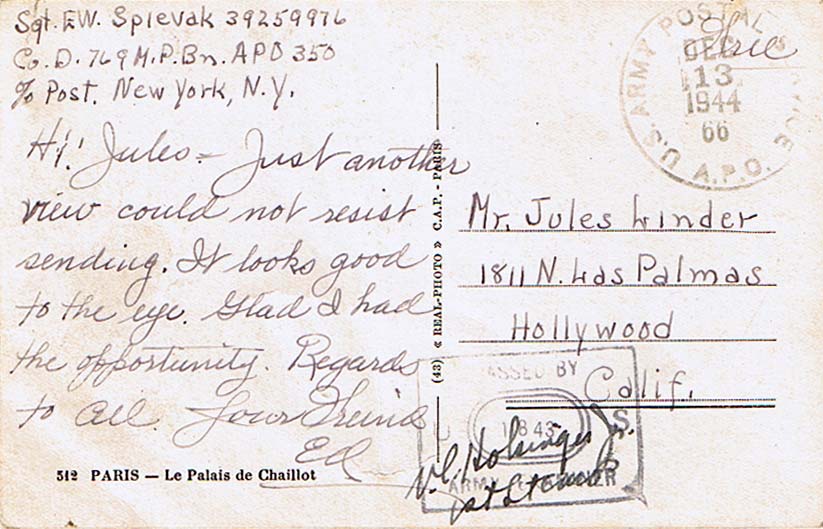 Sgt. E.W. Splevak 39259976
Co. D. 769 M.P. Bn. APO 350
℅ Post. New York, N.Y.
Hi! Jules - Just another
view could not resist
sending. It looks good
to the eye. Glad I had
the opportunity. Regards
to all. Your Friend
Ed
312 PARIS — Le Palais de Chaillot
(43) « REAL-PHOTO » C.A.P. - PARIS
Free
U.S. ARMY POSTAL SERVICE
A.P.O.
DEC
13
1944
66
Mr. Jules Linder
1811 N. Las Palmas
Hollywood
Calif.
PASSED BY
U S
11843
ARMY EXAMINER
V.C. Holsinger Jr.
1st Lt